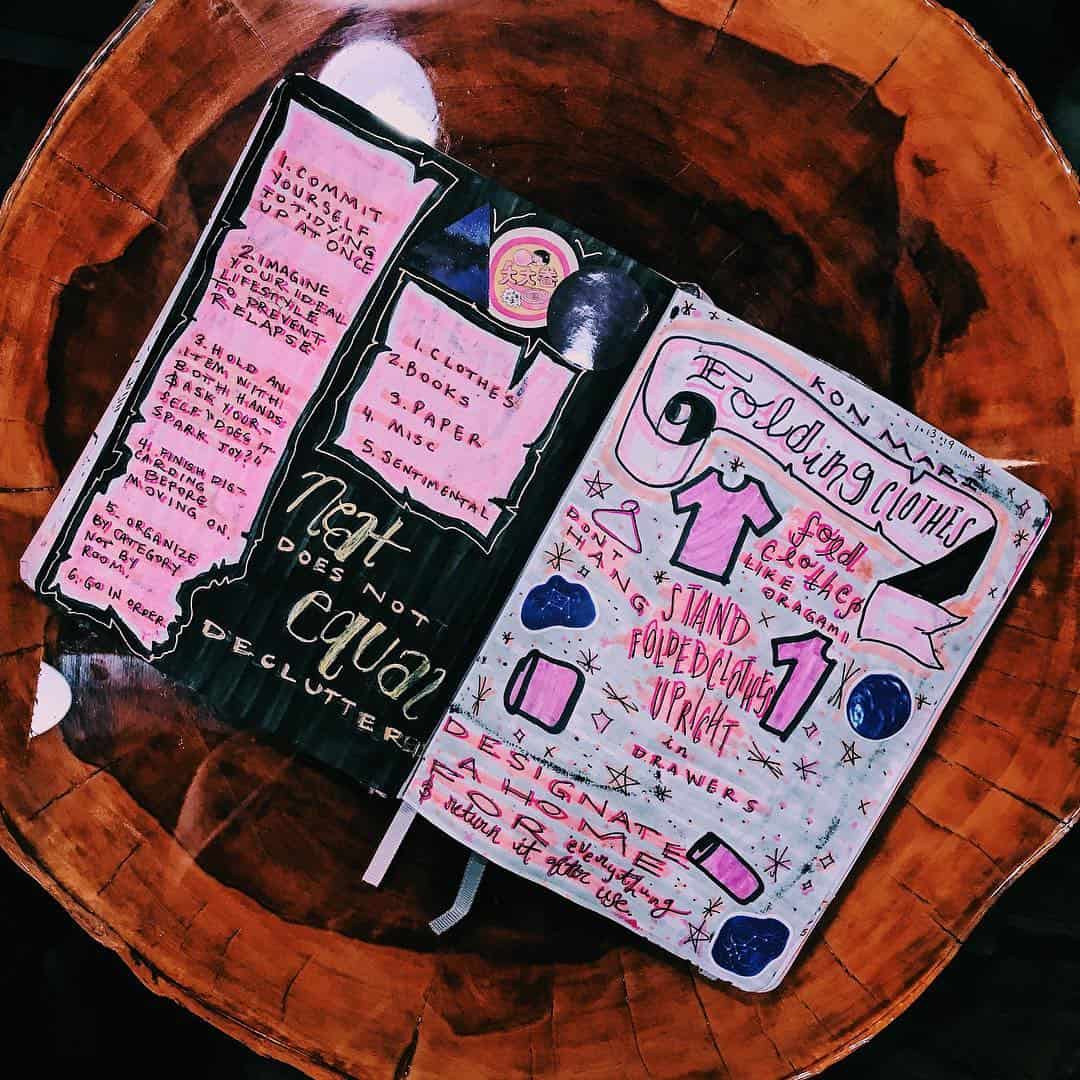 1. COMMIT
YOURSELF
TO TIDYING
UP AT ONCE
2. IMAGINE
YOUR IDEAL
LIFESTYLE
TO PREVENT
RELAPSE
3. HOLD AN
ITEM WITH
BOTH HANDS
& ASK YOUR
SELF "DOES IT
SPARK JOY?"
4. FINISH DIS-
CARDING
BEFORE
MOVING ON.
5. ORGANIZE
BY CATEGORY
NOT BY
ROOM!
6. GO IN ORDER
1. CLOTHES
2. BOOKS
3. PAPER
4. MISC
5. SENTIMENTAL
neat
DOES NOT
equal
DECLUTTERED
KON MARI
10.13.19 1AM
Folding CLOTHES
DONT
HANG
fold
clothes
LIKE
ORAGAMI
STAND
FOLDED CLOTHES
UPRIGHT
in
DRAWERS
DESIGNATE
A HOME
FOR everything
& return it after use.